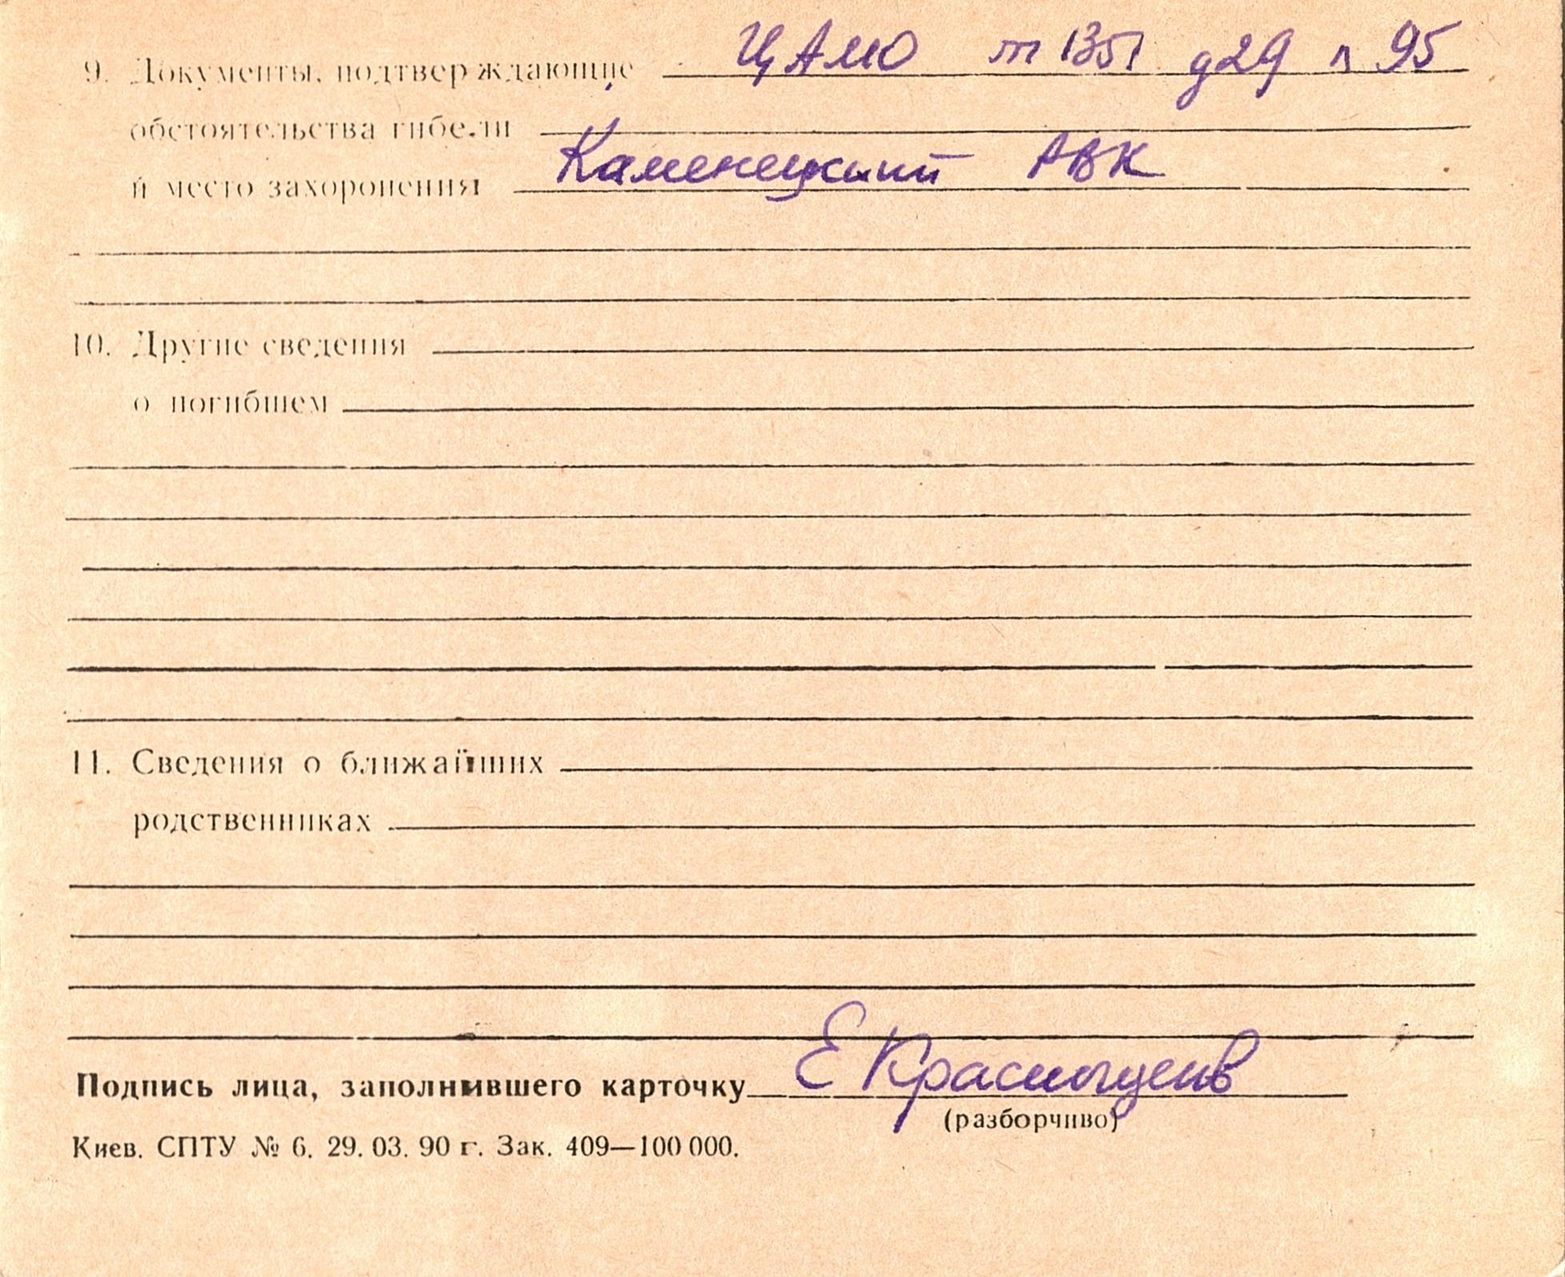 9. Документы, подтверждающие ЦАМО т 1351 д29 л 95
обстоятельства гибели
и место захоронения Каменецкий РВК
10. Другие сведения
о погибшем
11. Сведения о ближайших
родственниках
Подпись лица, заполнившего карточку Е
(разборчиво)
Киев. СПТУ № 6. 29. 03. 90 г. Зак. 409—100 000.